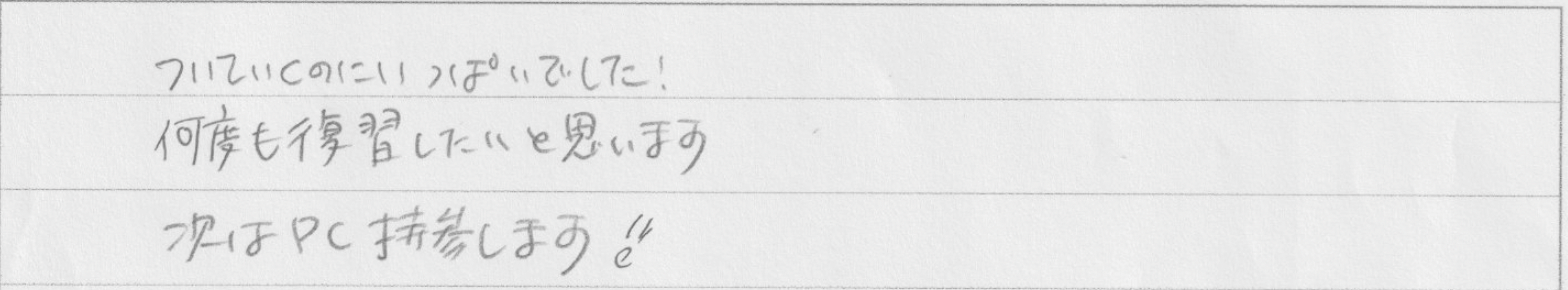 ついていくのにいっぱいでした!
何度も復習したいと思います
次はPC持参します!!